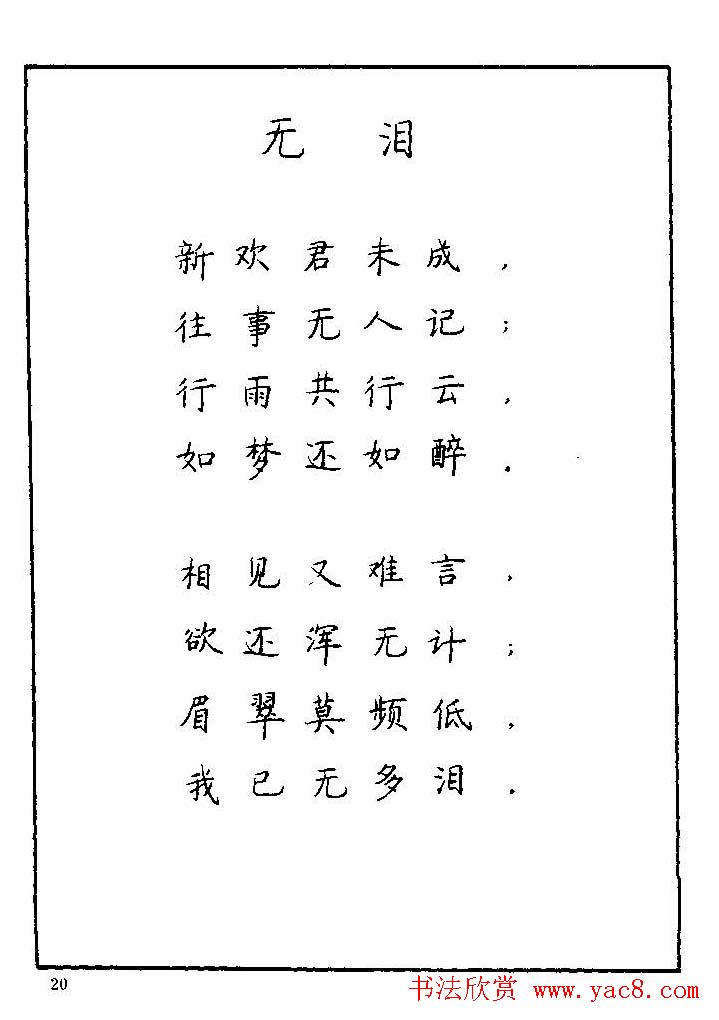 无 泪
新欢君未成，
往事无人记；
行雨共行云，
如梦还如醉．
相见又难言，
欲还浑无计；
眉翠莫频低，
我已无多泪．
20
书法欣赏 www.yac8.com